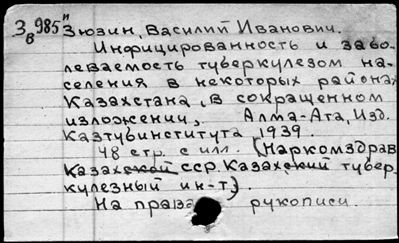 З в 985" Зюзин, Василий Иванович.
Инфицированность и забо-
леваемость туберкулезом на-
селения в некоторых районах
Казахстана, в сокращенном
изложении,. Алма-Ата, Изд.
Казтубинститута 1939.
48 стр. с илл. (Наркомздрав
Казахской сср. Казахский тубер-
кулезный ин-т).
На правах рукописи.